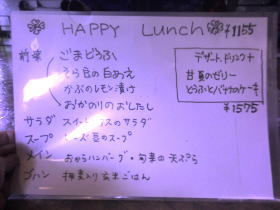 HAPPY Lunch ¥1155
前菜 ごまどうふ
そら豆の白あえ
かぶのレモン漬け
おかのりのおひたし
サラダ スイートのサラダ
スープ 豆のスープ
メイン おからハンバーグ・旬菜の天ぷら
ゴハン 押麦入り玄米ごはん
デザート、ドリンク付
甘夏のゼリー
とうふとバナナのケーキ
¥1575